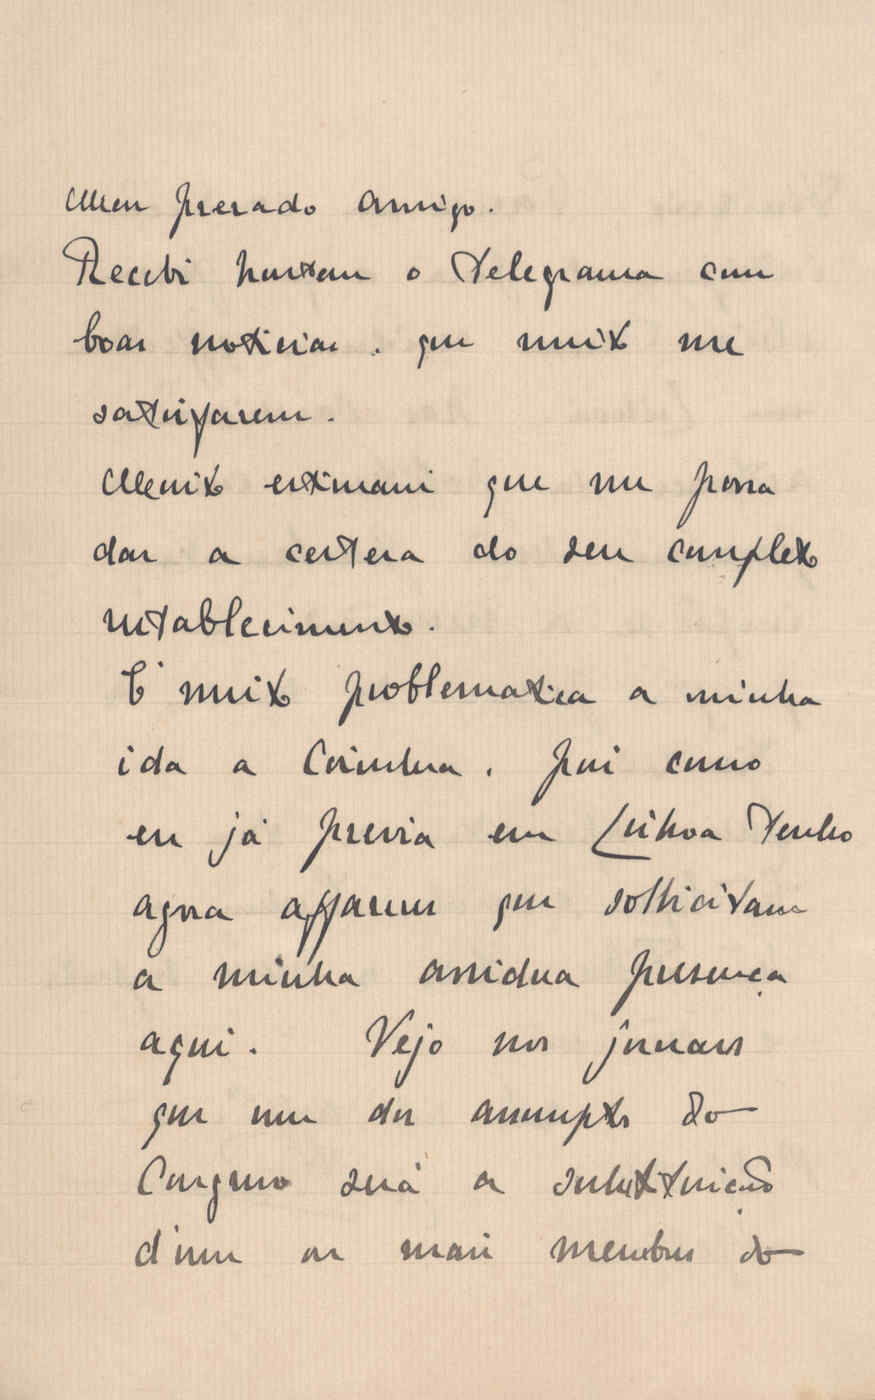 Meu presado amigo.
Recebi hontem o telegrama com
boas noticias, que muito me
satisfazem.
Muito estimarei que me possa
dar a certeza do seu completo
restablecimento.
E' muito problematica a minha
ida a Coimbra, pois como
eu já previa em Lisboa tenho
agora affazeres que sollicitam
a minha assidua presença
aqui. Vejo nos jornaes
que um dos assumptos do
Congresso será a substituição
d'um ou mais membros do